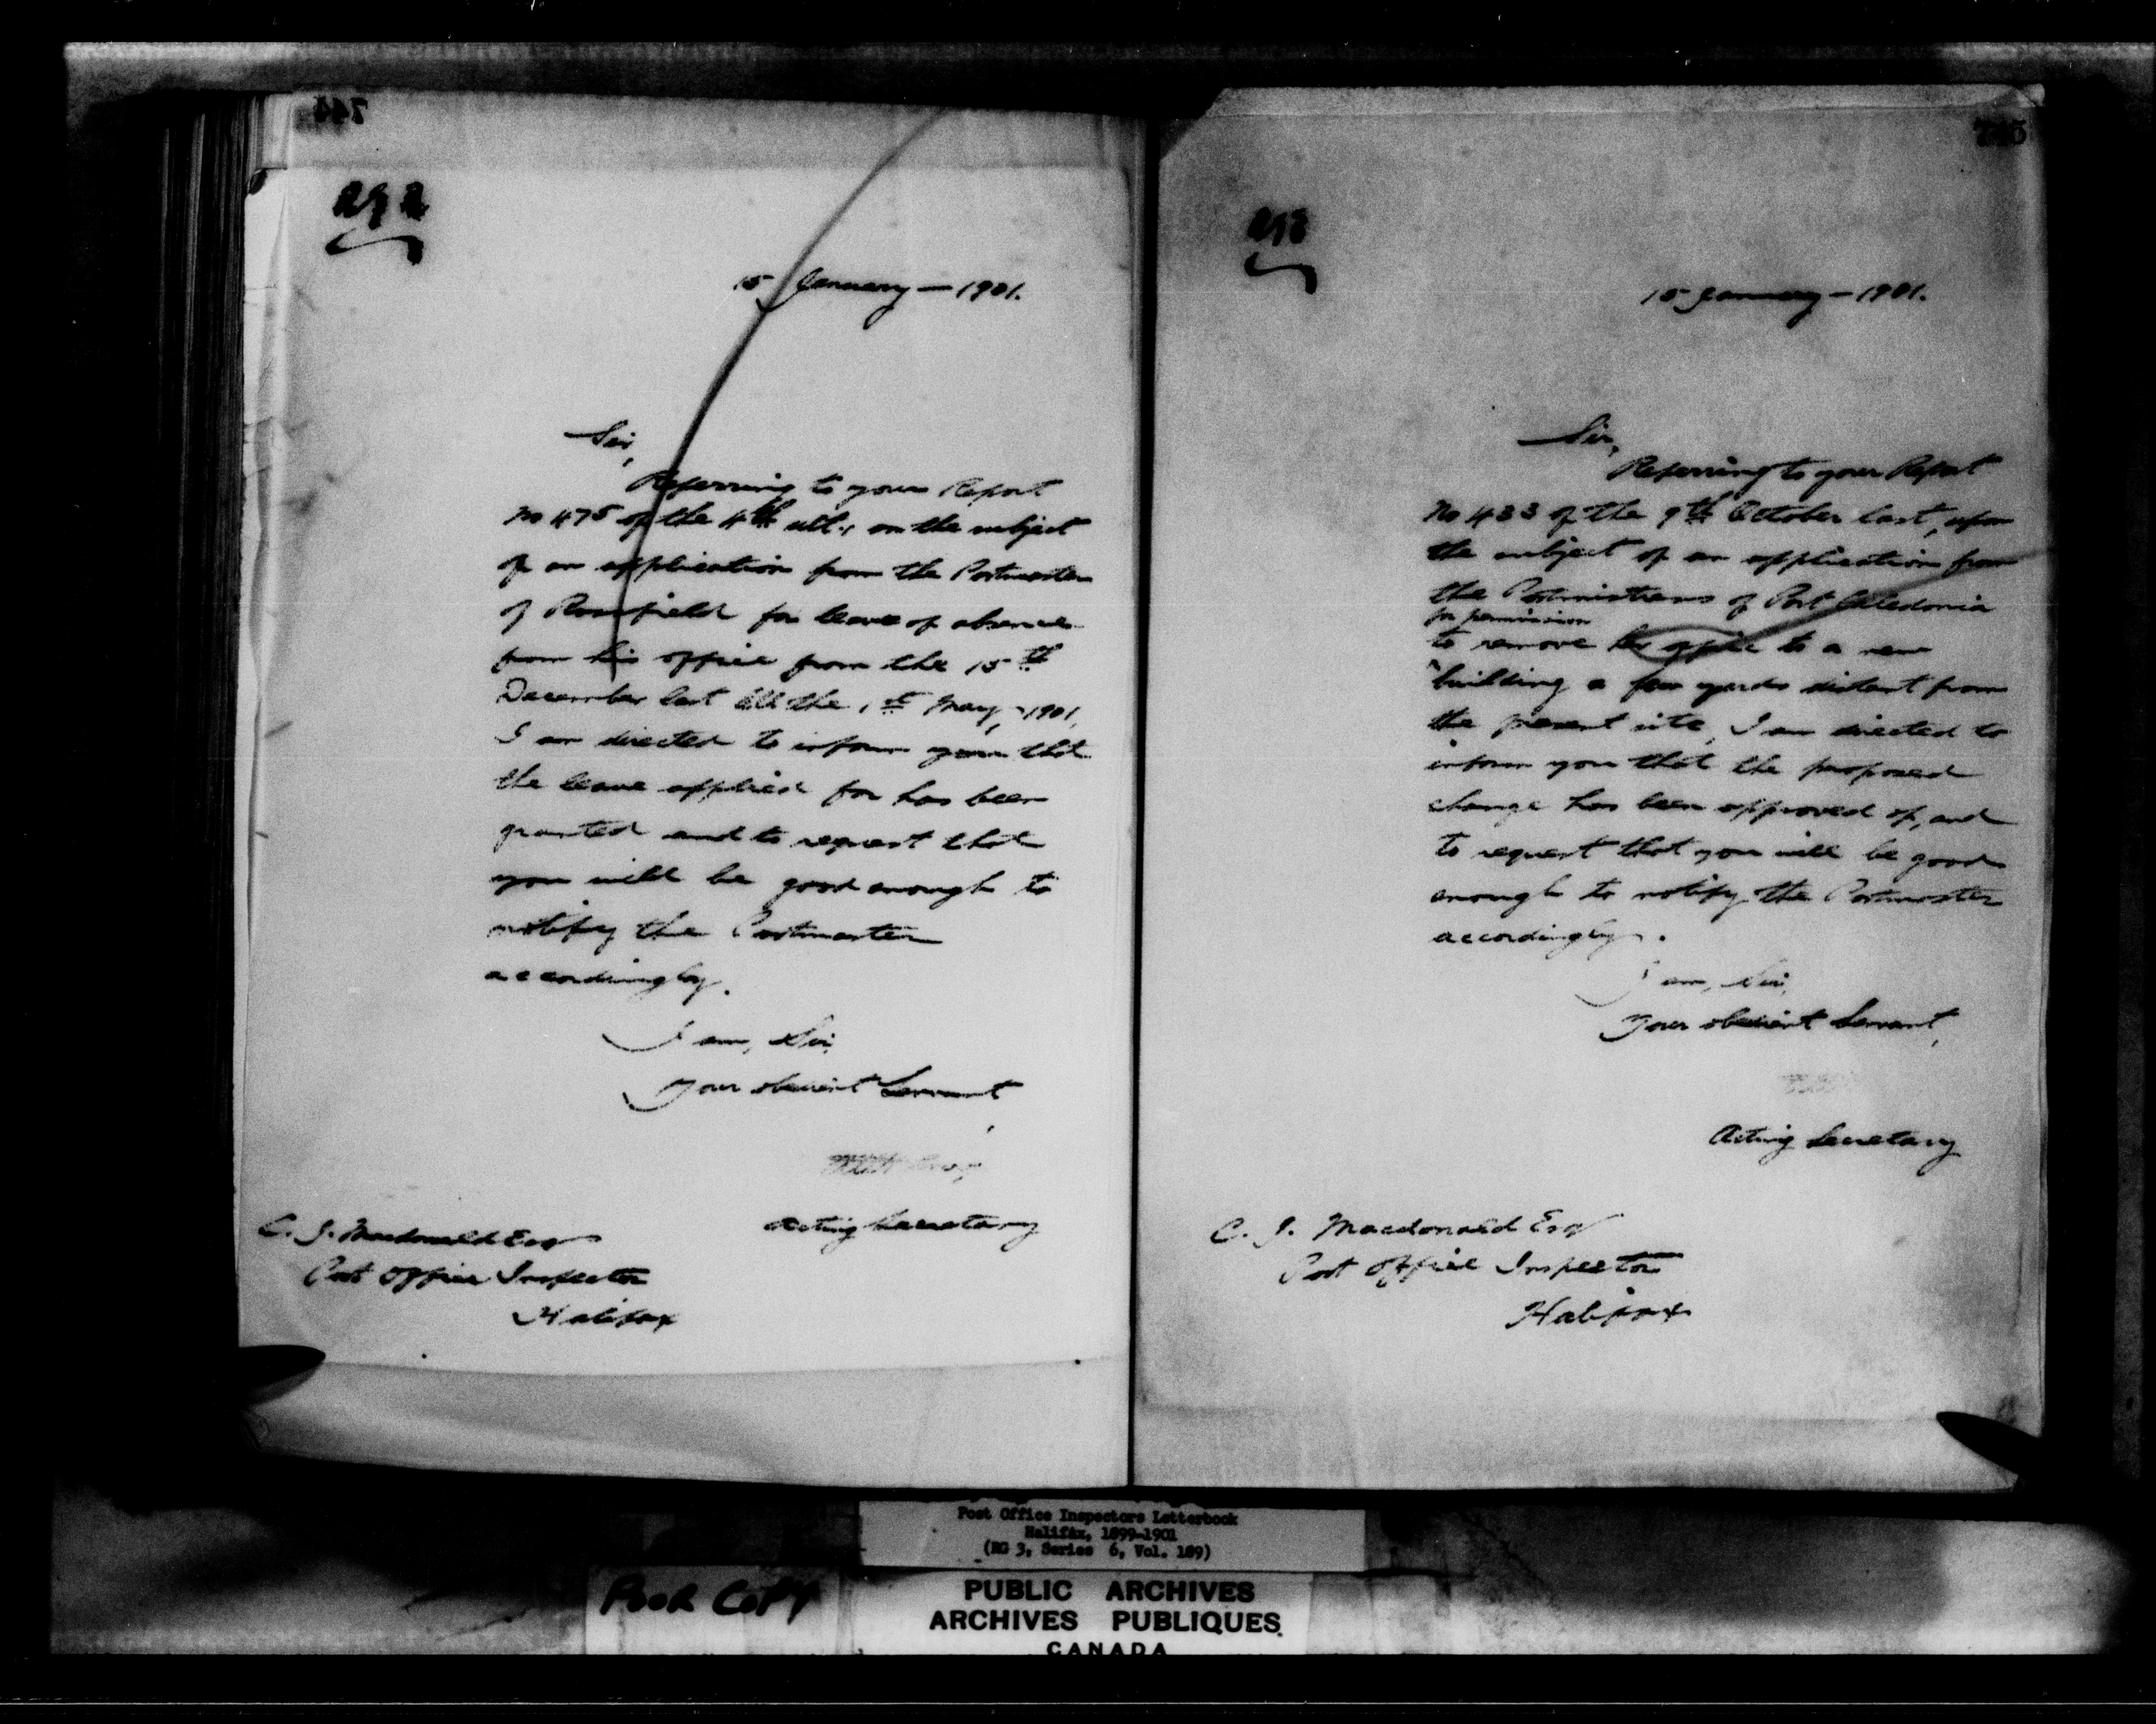 744
292
15 January — 1901.
Sir,
Referring to your Report
No 475 of the 4th ult., on the subject
of an application from the Postmaster
of Rosefield for leave of absence
from his office from the 15th
December last till the 1st May, 1901,
I am directed to inform you that
the leave applied for has been
granted and to request that
you will be good enough to
notify the Postmaster
accordingly.
I am, Sir,
Your obedient Servant,
Acting Secretary
C. J. Macdonald Esq
Post Office Inspector
Halifax
745
293
15 January — 1901.
Sir,
Referring to your Report
No 433 of the 9th October last, upon
the subject of an application from
the Postmistress of Port Caledonia
for permission
to remove her office to a new
building a few yards distant from
the present site, I am directed to
inform you that the proposed
change has been approved of, and
to request that you will be good
enough to notify the Postmaster
accordingly.
I am, Sir,
Your obedient Servant,
Acting Secretary
C. J. Macdonald Esq
Post Office Inspector
Halifax
Post Office Inspectors Letterbook
Halifax, 1899-1901
(RG 3, Series 6, Vol. 189)
POOR COPY
PUBLIC ARCHIVES
ARCHIVES PUBLIQUES
CANADA